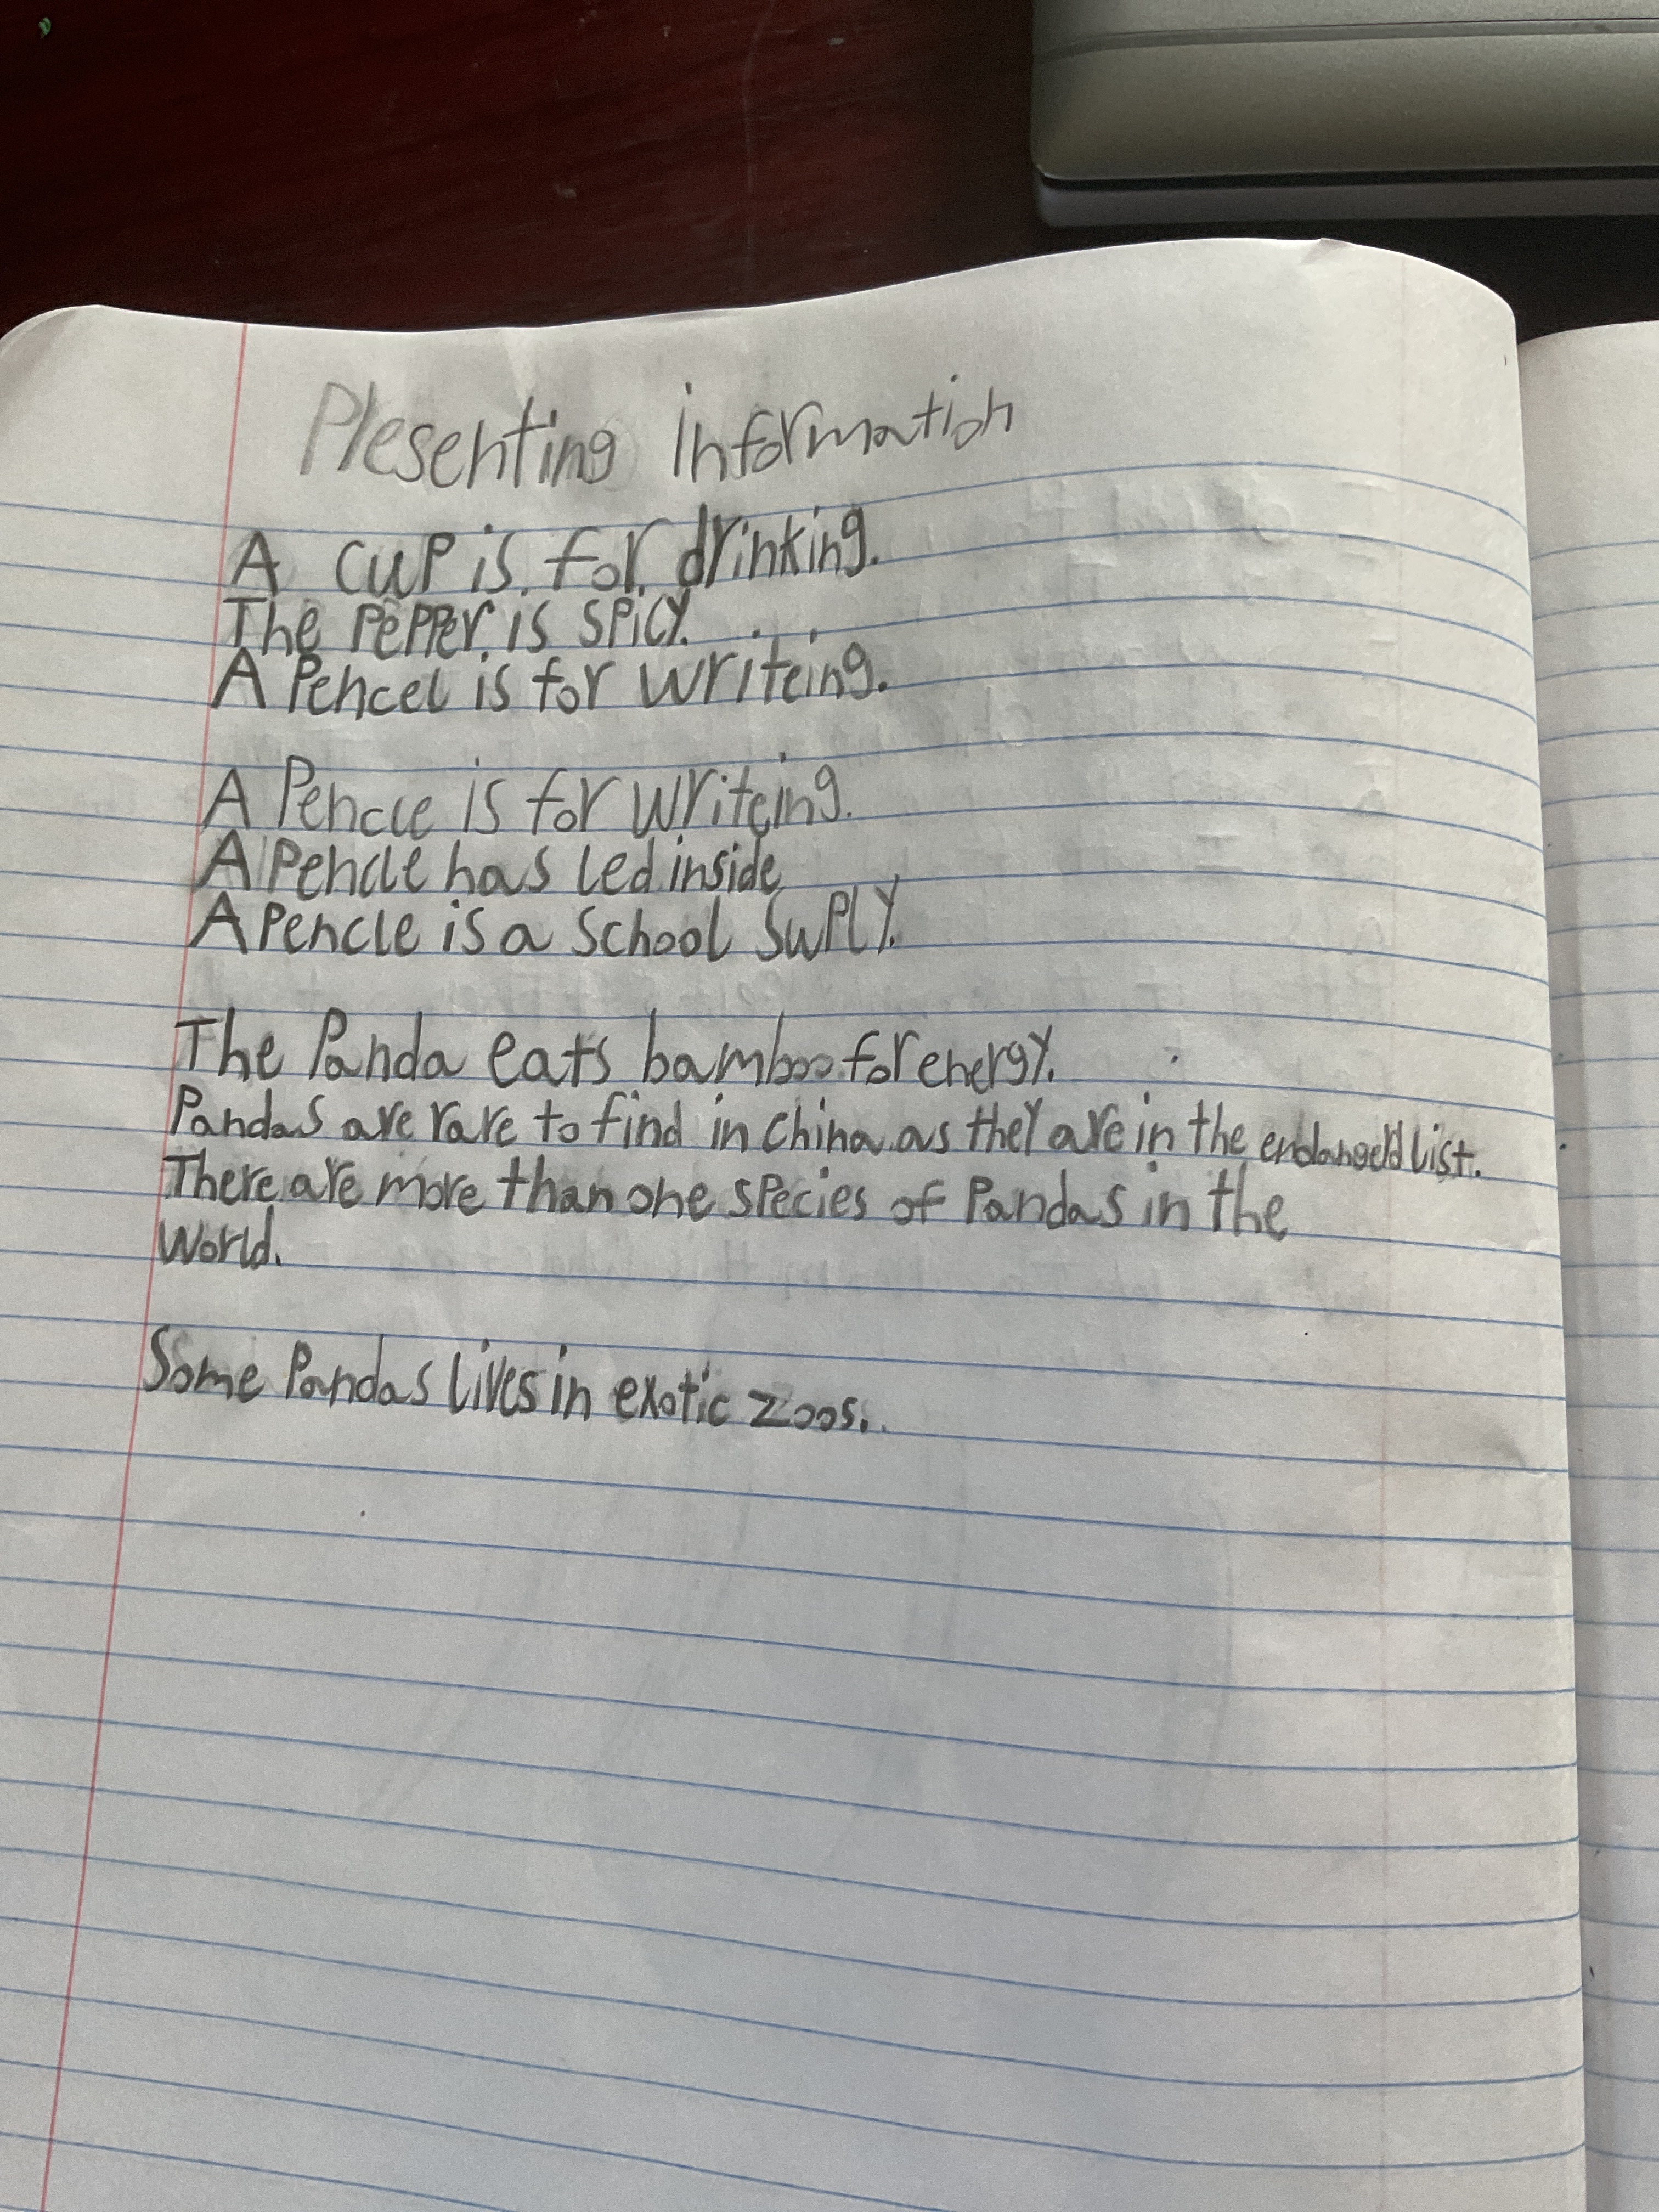 Presenting information
A cup is for drinking.
The Pepper is spicy.
A Pencel is for writeing.
A Pencle is for writeing.
A Pencle has led inside
A Pencle is a school suply.
The Panda eats bamboo for energy.
Pandas are rare to find in china as they are in the endangerd list.
There are more than one species of Pandas in the
world.
Some Pandas lives in exotic zoos.